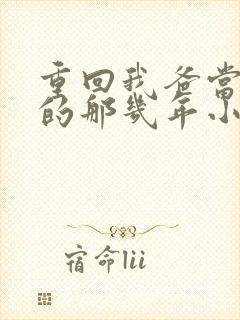 重回我爸当
的那几年小
宿命lii